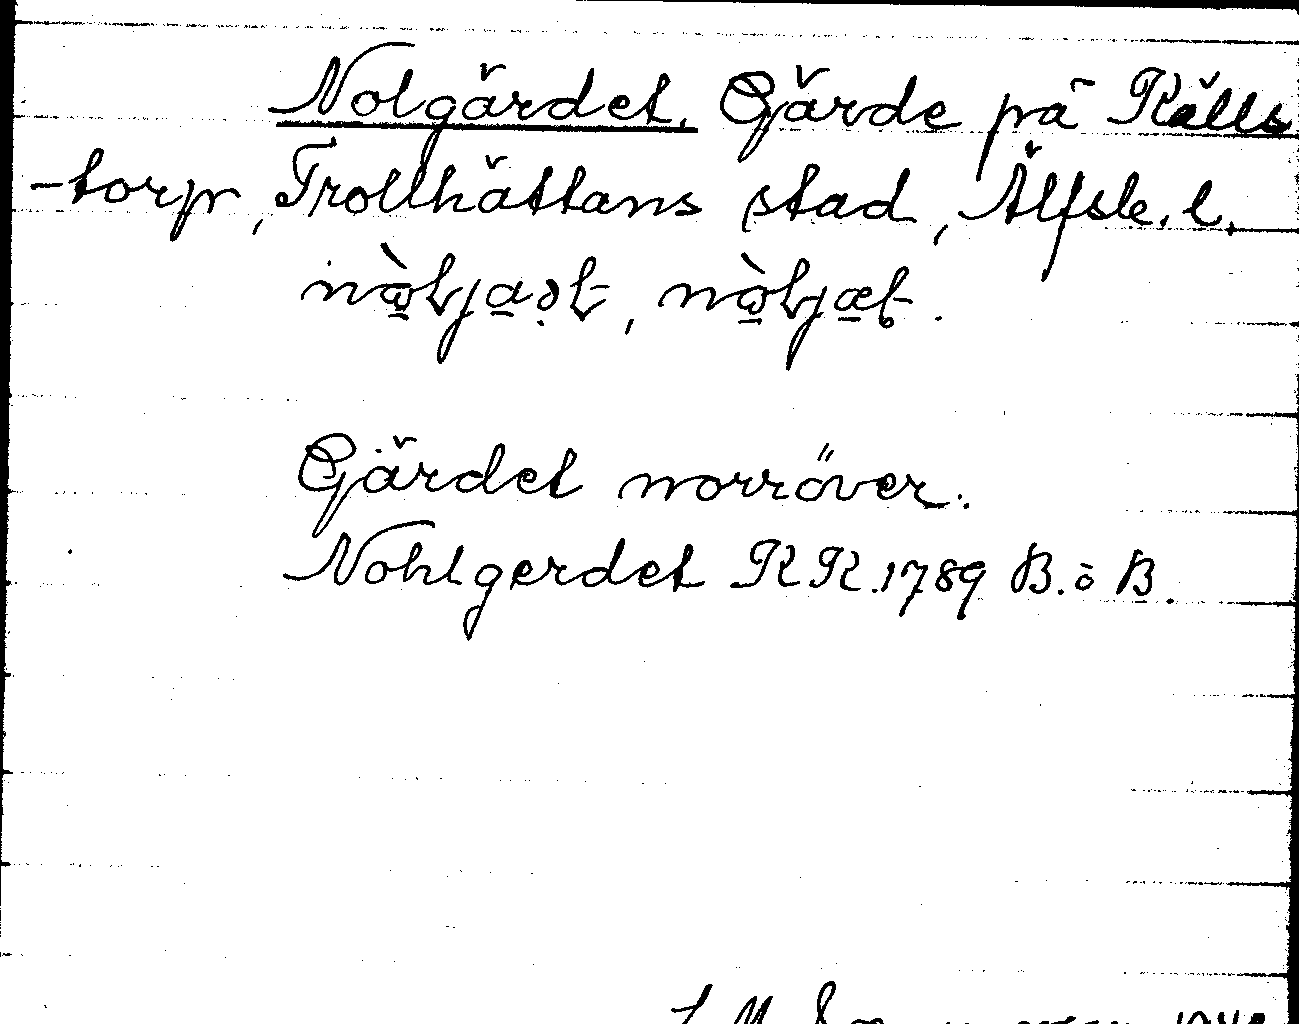 Nolgärdet. Gärde på Källs
-torp, Trollhättans stad, Älfsb. l.
Gärdet norröver.
Nohlgerdet KK. 1789 B. ö B.